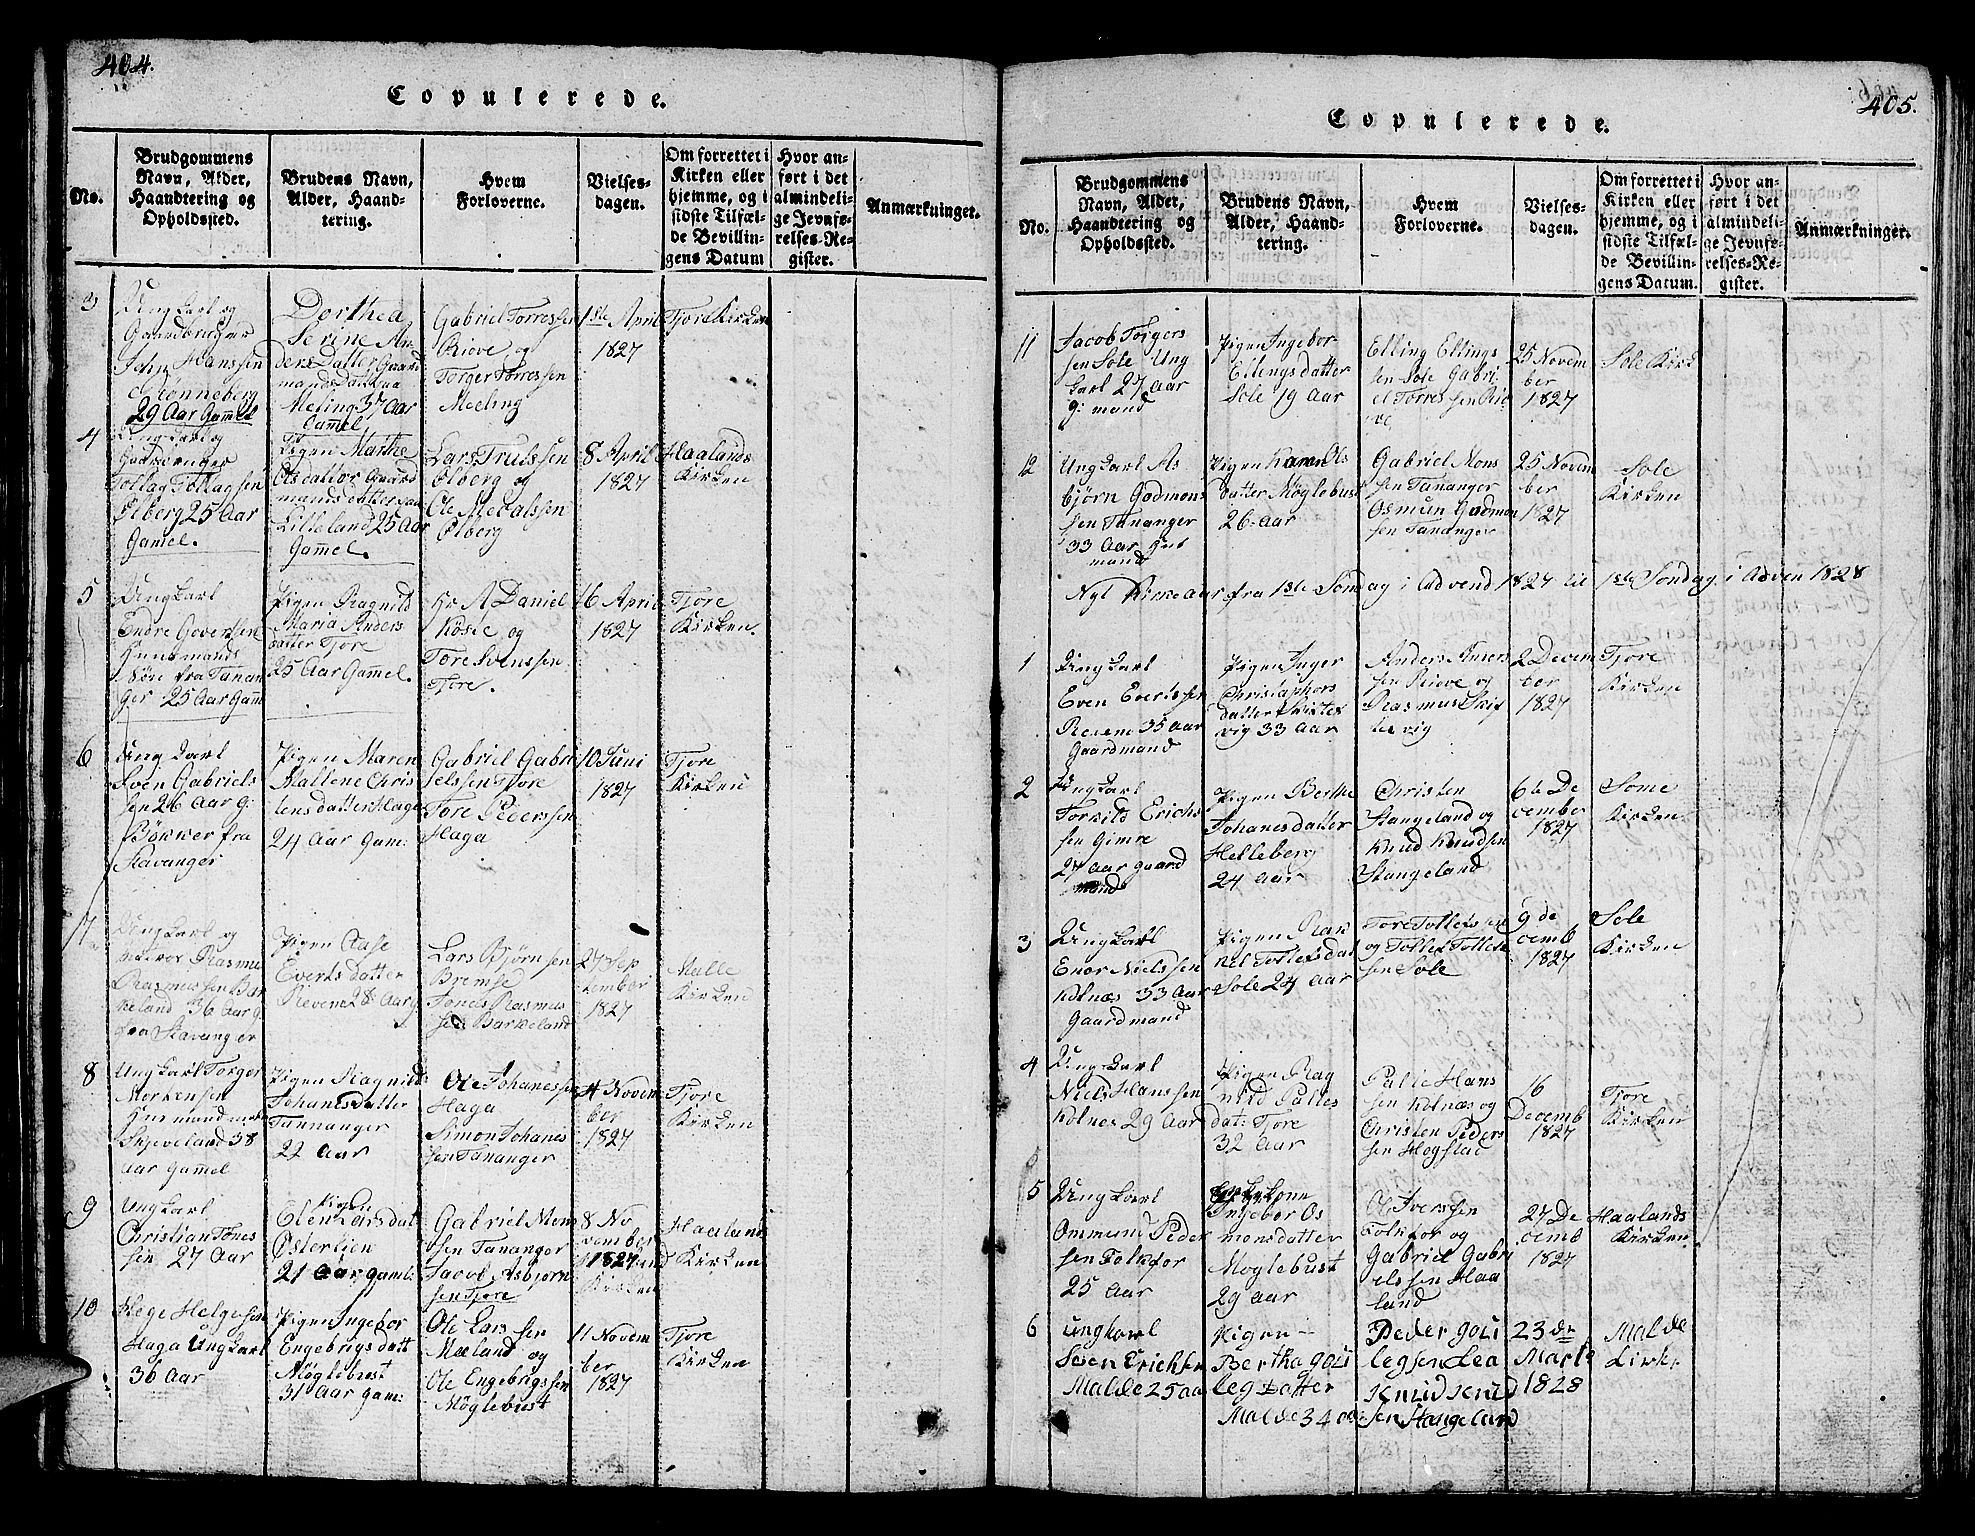 404.
Copulerede.
No.
Brudgommens
Navn, Alder,
Haandtering og
Opholdssted.
Brudens Navn,
Alder, Haand-
tering.
Hvem
Forloverne.
Vielses-
dagen.
Om forrettet i
Kirken eller
hjemme, og i
sidste Tilfæl-
de Bevillin-
gens Datum
Hvor an-
ført i det
almindeli-
ge Jevnfø-
relses-Re-
gister.
Anmærkninger.
3
Ung Karl og
Gaardbruger
John Hanssen
Rønneberg
29 Aar Gamel
Dorthea
Serine An-
ders Datter Gaard
mands Datter
Meling 37 Aar
Gamel
Gabriel Torressen
Risve og
Torger Torressen
Meeling
1ste April
1827
Tjora Kirken
4
Ung Karl og
Tollag Tollagsen
Ølberg 25 Aar
Gamel.
Pigen Marthe
Olsdatter Gaard
mands datter
Lilleland 25 Aar
Gamel.
Lars Trulssen
Ølberg og
Ole Medalssen
Ølberg
8 April
1827
Haalands
Kirken
5
Ung Karl
Endre Goversen
Huusmands
Søn fra Tanan
ger 25 Aar Gam
Pigen Ragnild
Maria Anders
datter Tjore
25 Aar Gamel.
Hr A Daniel
Køsie og
Tore Svenssen
Tjore.
16 April
1827
Tjore
Kirken.
6
Ung Karl
Sven Gabriels
sen 26 Aar g:
Bøkker fra
Stavanger
Pigen Maren
Mallene Chris
tensdatter Hage
24 Aar Gam:
Gabriel Gabri
elssen Tjore
Tore Pederssen
Haga
10 Juni
1827
Tjore
Kirken
7
Ung Karl og
Rasmus
Rasmussen Bar
keland 36 Aar g
fra Stavanger
Pigen Aase
Everts datter
Reven 28 Aar g
Lars Bjørnsen
Bremse
Tønes Rasmus
sen Barkeland
27 Sep
tember
1827
Malle
Kirken
8
Ung Karl Torger
Mortensen
Huusmand
Skjeveland 38
Aar Gamel
Pigen Ragnild
Johanesdatter
Tannanger
22 Aar
Ole Johanessen
Haga
Simon Johanes
sen Tananger
4 Novem
ber
1827
Tjore
Kirken
9
Ung Karl
Christian Tønes
sen 27 Aar
Pigen
Elen Larsdat
Østerlien
21 Aar gaml.
Gabriel Mons
sen Tananger
Jacob Asbjørn
sen Tjore
8 No
vember
1827
Haaland
Kirken
10
Hege Helgesen
Haga Ung Karl
36 Aar
Pigen Ingebor
Engebrigsdatt
Møglebust
31 Aar gam:
Ole Lars sen
Mæland og
Ole Engebrigssen
Møglebust
11 Novem
ber
1827
Tjore
Kirken
405.
Copulerede.
No.
Brudgommens
Navn, Alder,
Haandtering og
Opholdssted.
Brudens Navn,
Alder, Haand-
tering.
Hvem
Forloverne.
Vielses-
dagen.
Om forrettet i
Kirken eller
hjemme, og i
sidste Tilfæl-
de Bevillin-
gens Datum.
Hvor an-
ført i det
almindeli-
ge Jevnfø-
relses-Re-
gister.
Anmærkninger.
11
Jacob Torgers
sen Sole Ung
Karl 27 Aar
g: mand
Pigen Ingebor
Ellingsdatter
Sole 19 Aar
Elling Ellings
sen Sole Gabri
el Torressen Ris
ve
25 Novem
ber
1827
Sole Kirk
12
Ung Karl As
bjørn Godmons
sen Tananger
33 Aar Huus
mand
Pigen Karen Ols
datter Møglebust
26 Aar
Gabriel Mons
sen Tananger
Osmun Godmon
sen Tananger
25 Novem
ber
1827
Sole
Kirken
Nyt Kirkeaar fra 1ste Søndag i Advend 1827 til 1ste Søndag i Adven 1828
1
Ung Karl
Even Evertssen
Revem 35 Aar
Gaardmand
Pigen Inger
Christophors
datter Skiftes
vig 33 Aar
Anders Anders
sen Risve og
Rasmus Skif
tesvig
2 Decem
ber
1827
Tjore
Kirken
2
Ung Karl
Torkild Erichs
sen Gimre
27 Aar Gaard
mand
Pigen Berthe
Johanesdatter
Helleberg
24 Aar
Christen
Stangeland og
Knud Knudsen
Stangeland
6te De
cember
1827
Some
Kirken
3
Ung Karl
Enor Nielssen
Kolnæs 33 Aar
Gaardmand
Pigen Rak
nel Tollefsdat
Sole 24 Aar
Tore Tollefssen
og Tollef Tollefs
sen Sole
9 de
cemb
1827
Sole
Kirken
4
Ung Karl
Niels Hanssen
Kolnes 29 Aar
Pigen Rag
nild Palles
dat: Tjore
32 Aar
Palle Hans
sen Kolnæs og
Christen Peders
sen Hogstad
16
Decemb
1827
Tjore
Kirken
5
Ung Karl
Ommund Peder
sen Folkfor
25 Aar
Ingebor Os
monsdatter
Møglebust
29 Aar
Ole Iverssen
Folkfor og
Gabriel Gabri
elssen Haa
land
27 De
cemb
1827
Haalands
Kirken
6
ungkarl
Sven Erichsen
Malde 25 aa
Pigen –
Bertha Goli
leg Datter
Malde 34 aar
Peder Goli
legsen Lea
Knud Knud
sen Stangeland
23 de
Marts
1828
Malde
Kirke